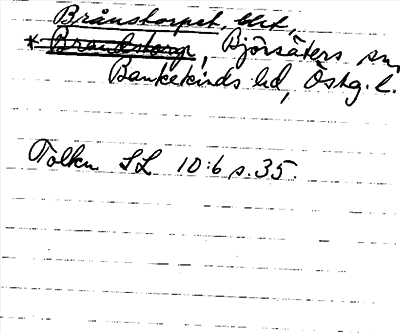 Brånstorpet, blet,
* Brandstorp, Björsäters sn,
Bankekinds hd, Östg. l.
Tolken SL 10:6 s. 35.